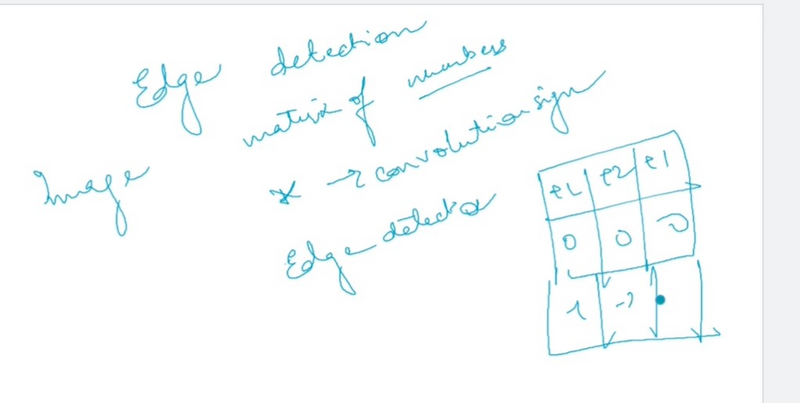 Edge detection
Image matrix of numbers
* → convolution sign
Edge detector
+1 +2 +1
0 0 0